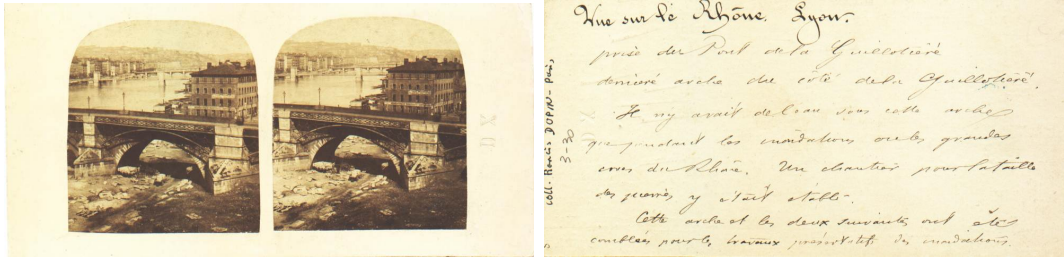 Vue sur le Rhône. Lyon.
prise du Pont de la Guillotière
dernière arche du côté de la Guillotière.
Il n'y avait de l'eau sous cette arche
que pendant les inondations ou les grandes
crues du Rhône. Un chantier pour la taille
des pierres y était établi.
Cette arche et les deux suivantes ont été
comblées pour les travaux préservatifs des inondations.
coll. Francis DUPIN - Paris,
3-30